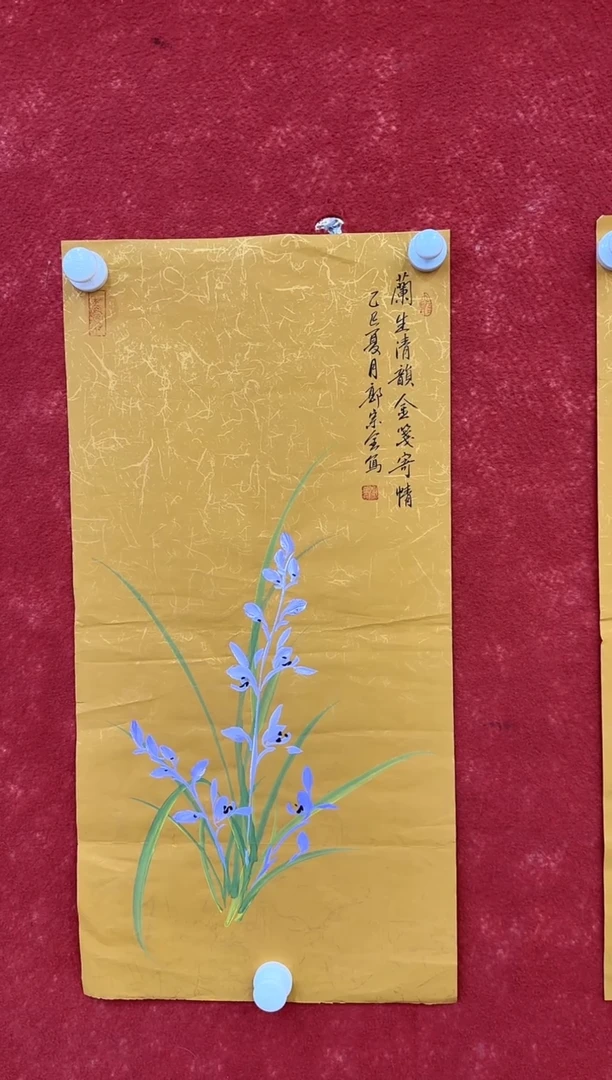 蘭生清韻金箋寄情
乙巳夏月鄭宗会寫